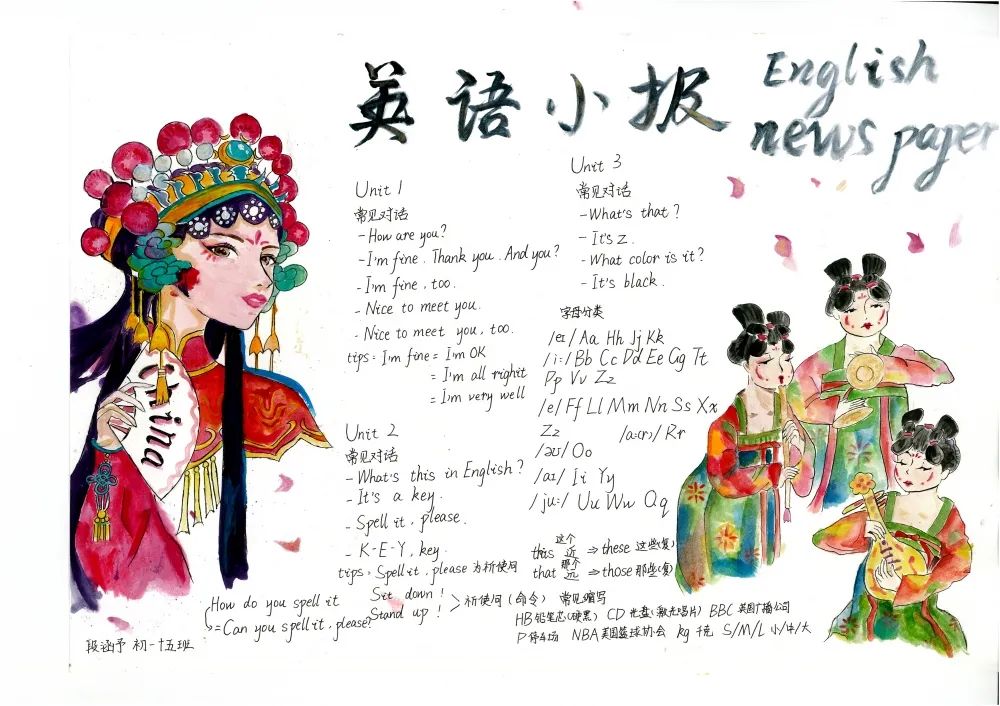 英语小报
English
news paper
China
Unit 1
常见对话
-How are you?
-I'm fine. Thank you. And you?
-I'm fine, too.
-Nice to meet you.
-Nice to meet you, too.
tips: I'm fine = I'm OK
= I'm all righit
= I'm very well
Unit 2
常见对话
-What's this in English?
-It's a key.
-Spell it, please.
-K-E-Y, key.
tips: Spell it, please 为祈使问
Sit down!
Stand up!
祈使问(命令)
How do you spell it
=Can you spell it, please?
Unit 3
常见对话
-What's that?
-It's Z.
-What color is it?
-It's black.
字母分类
/eɪ/ Aa Hh Jj Kk
/i:/ Bb Cc Dd Ee Gg Tt
Pp Vv Zz
/e/ Ff Ll Mm Nn Ss Xx
Zz /a:(r)/ Rr
/əʊ/ Oo
/aɪ/ Ii Yy
/ju:/ Uu Ww Qq
这个
this 近 ⇒ these 这些(复)
那个
that 远 ⇒ those 那些(复)
常见缩写
HB 铅笔芯(硬黑) CD 光盘(激光唱片) BBC 英国广播公司
P 停车场 NBA 美国篮球协会 kg 千克 S/M/L 小/中/大
段涵予 初一十五班